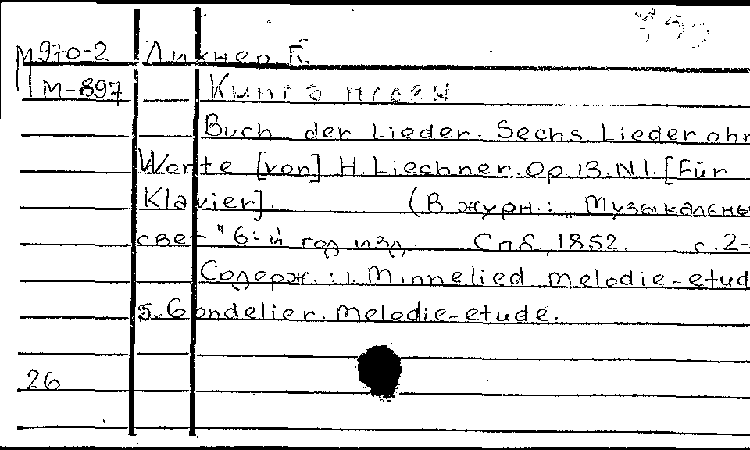 М970-2 Лихнер Г.
М-897 Книга песен
Buch der Lieder. Sechs Lieder ohn
Worte [von] H. Liechner. Op. 13. N 1. [Für
Klavier]. (В журн.: Музыкальны
свет" 6-й год изд. Спб, 1852. с. 2-
Содерж.: 1. Minnelied melodie-etud
5. Gondelier. Melodie-etude.
26